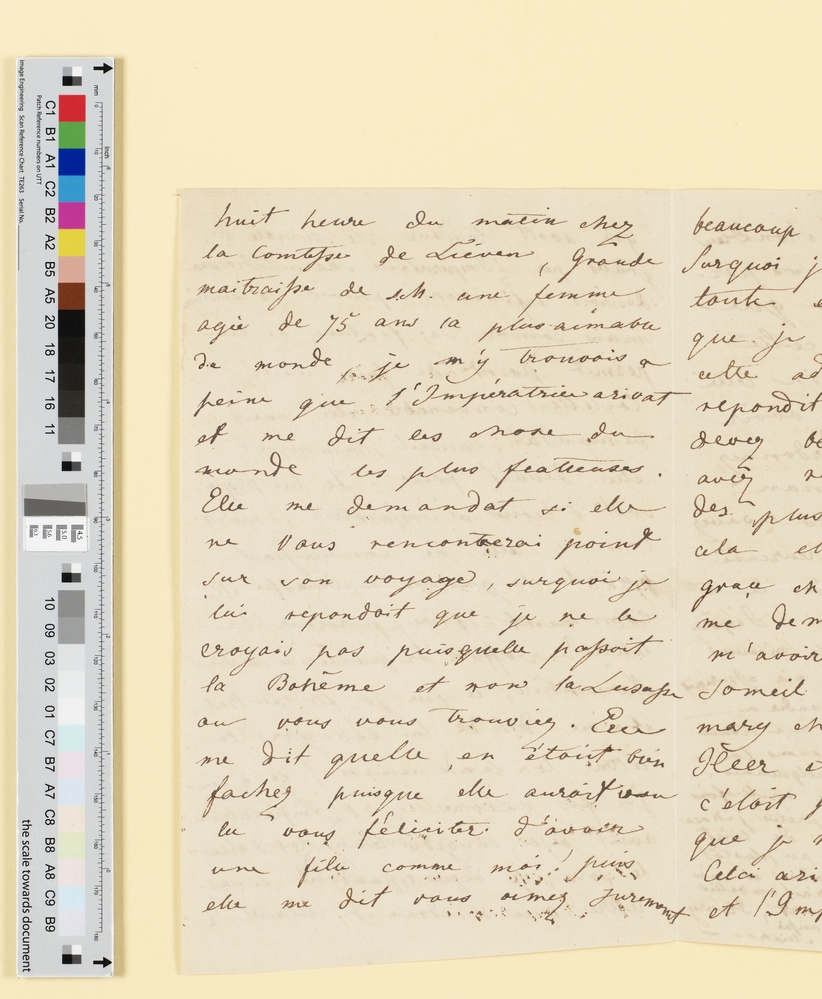 huit heure du matin chez
la Comtesse de Lieven, Grande
maitraisse de S.M. une femme
agée de 75 ans la plus aimable
du monde, je m'y trouvois a
peine que l'Impératrice arivat
et me dit les chose du
monde les plus flatteuses.
Elle me demandat si elle
ne vous rencontrerai point
sur son voyage, surquoi je
lui repondoit que je ne le
croyais pas puisquelle passoit
la Bohême et non la Lusasse
ou vous vous trouviez. Elle
me dit quelle en étoit bien
fachez puisque elle auroit voulu
vous féliciter d'avoir
une fille comme moi! puis
elle me dit vous aimez surement
beaucoup
Surquoi j
toute
que je
cette ad
repondit
devez be
avéz
des plus
cela el
grace ch
me dem
m'avoir
Someil
mary ch
c'étoit p
que je
Celci ari
et l'Imp
Image Engineering Scan Reference Chart TE263 Serial No.
Patch Reference numbers on UTT
C1 B1 A1 C2 B2 A2 B5 A5 20 18 17 16 11
10 09 03 02 01 C7 B7 A7 C8 B8 A8 C9 B9
the scale towards document
mm
inch